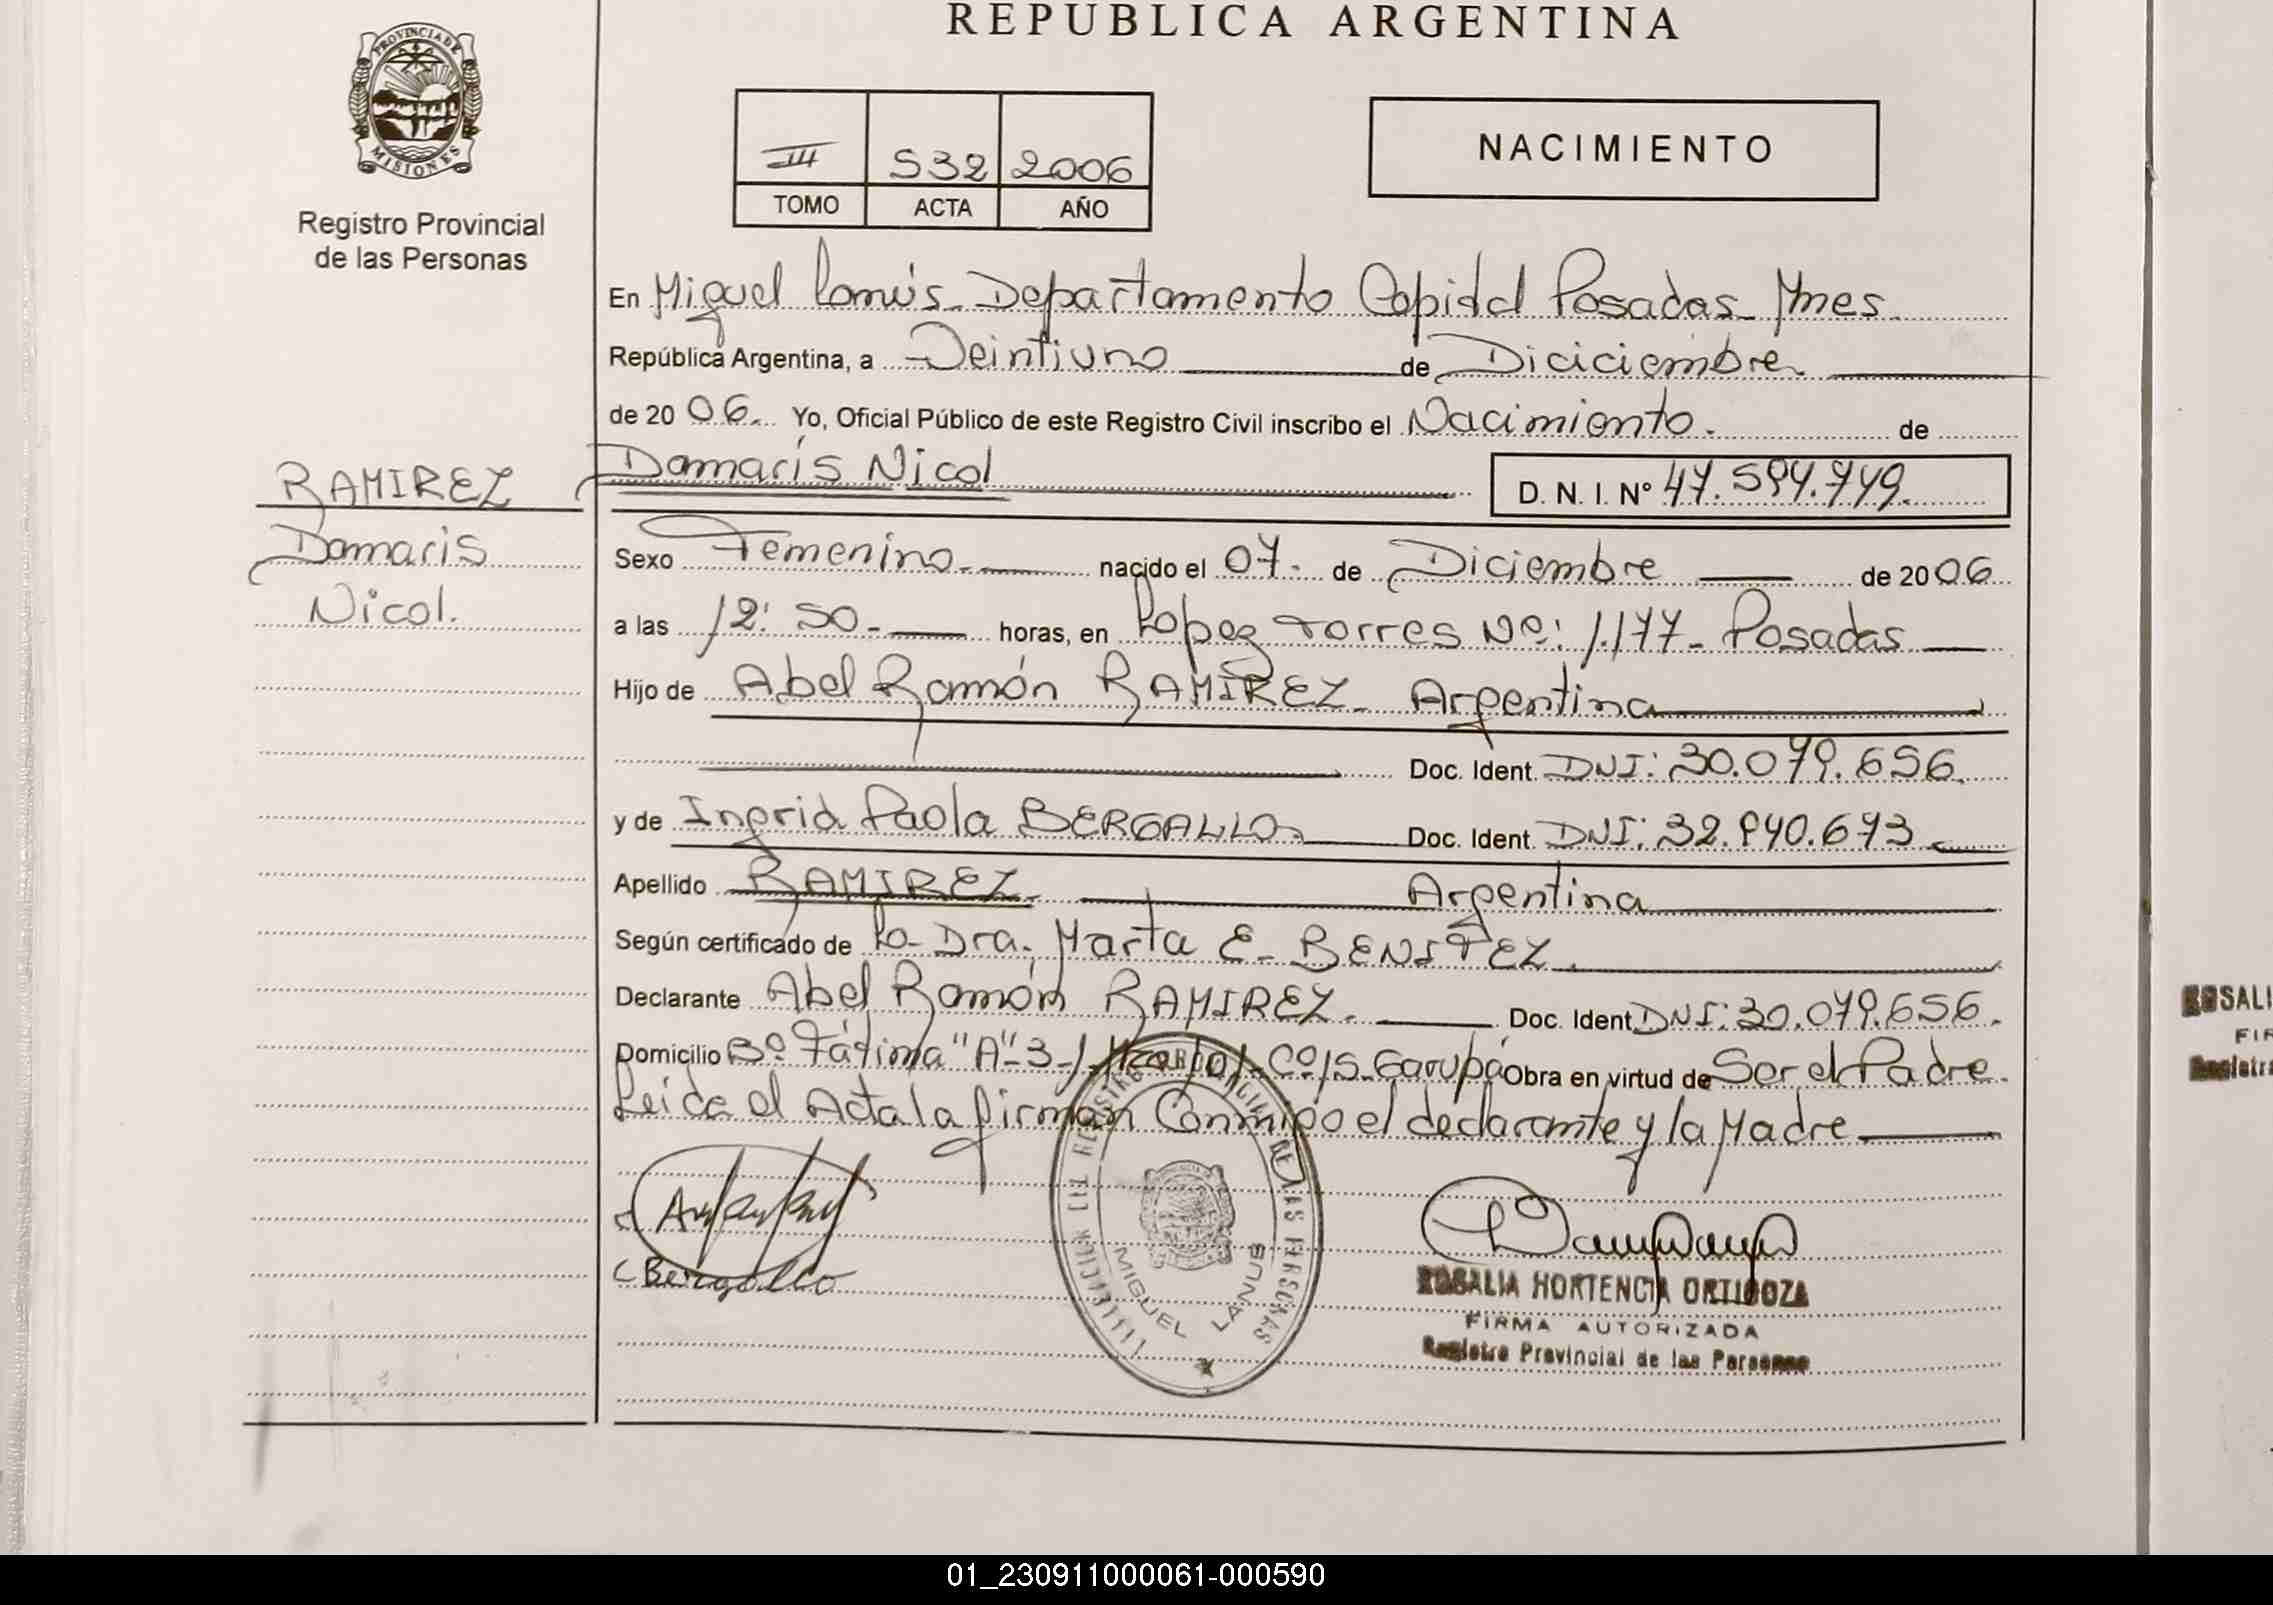 REPUBLICA ARGENTINA
PROVINCIA DE
MISIONES
Registro Provincial
de las Personas
III 532 2006
TOMO ACTA AÑO
NACIMIENTO
En Miguel Lanús - Departamento Capital Posadas - Mnes.
República Argentina, a Veintiuno de Diciciembre
de 2006. Yo, Oficial Público de este Registro Civil inscribo el Nacimiento. de
Damaris Nicol D. N. I. Nº 47.594.749.
RAMIREZ
Damaris
Nicol.
Sexo Femenino. nacido el 07. de Diciembre de 2006
a las 12:50 - horas, en Lopez Torres Nº: 1.177 - Posadas
Hijo de Abel Ramón RAMIREZ - Argentina
Doc. Ident. DNI: 30.079.656.
y de Ingrid Paola BERGALLO. Doc. Ident. DNI: 32.840.673
Apellido RAMIREZ. Argentina
Según certificado de La Dra. Marta E. BENITEZ.
Declarante Abel Ramón RAMIREZ. Doc. Ident DNI: 30.079.656.
Domicilio Bº Fátima "A"-3- Cº15. Garupá Obra en virtud de Ser el Padre.
Leida el Acta la firman Conmigo el declarante y la Madre
Bergallo
REGISTRO PROVINCIAL DE LAS PERSONAS
MIGUEL LANUS
ROSALIA HORTENCIA ORTIGOZA
FIRMA AUTORIZADA
Registro Provincial de las Personas
ROSALI
FIR
Registr
01_230911000061-000590